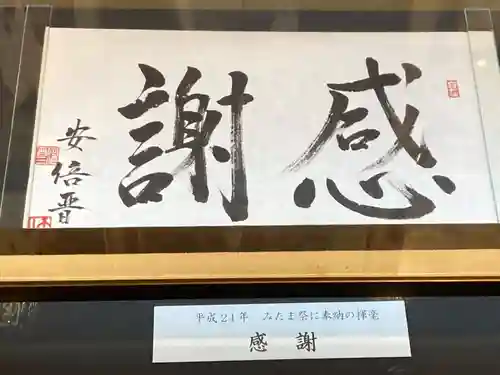 感謝
安倍晋
平成24年 みたま祭に奉納の揮毫
感謝